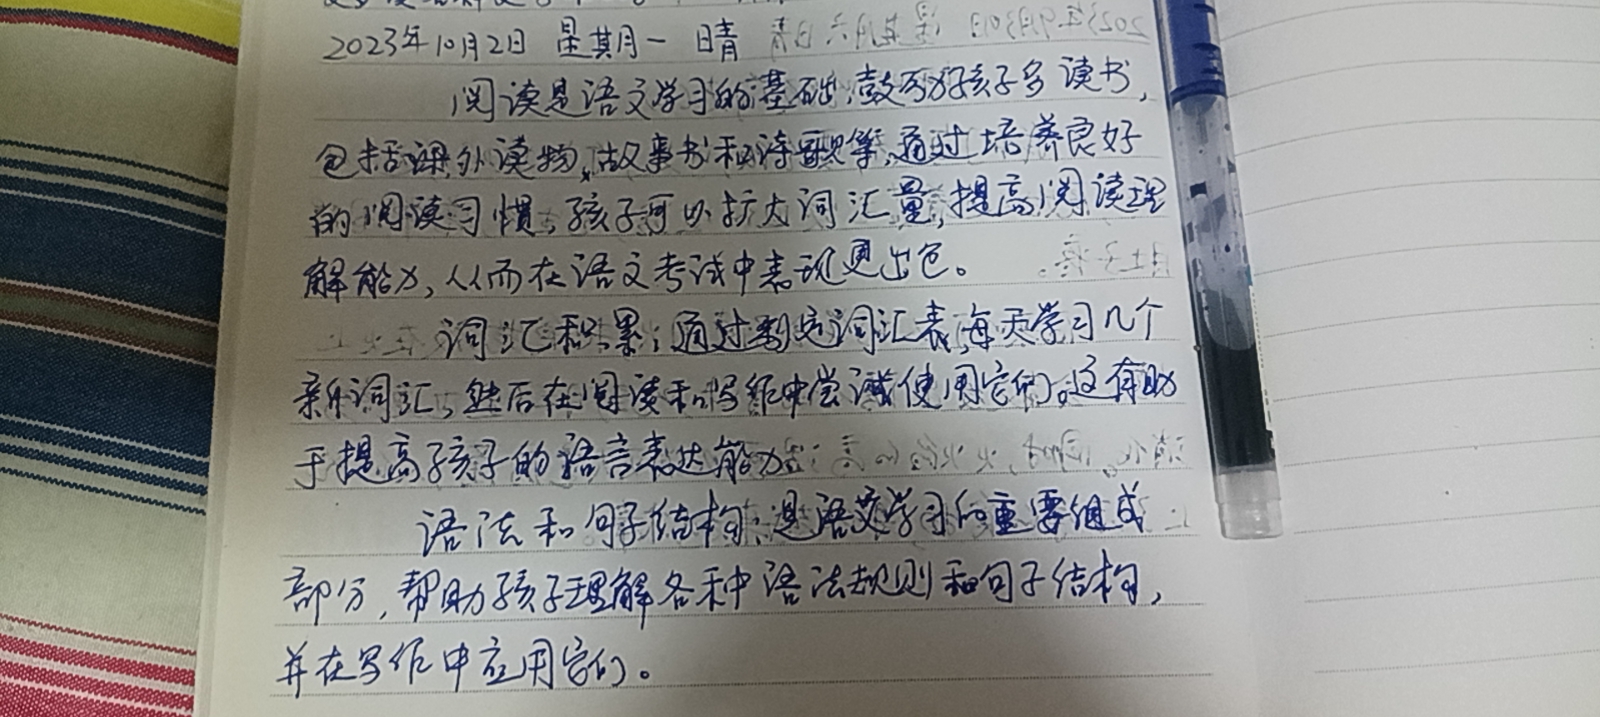 2023年10月2日 星期一 晴
阅读是语文学习的基础,鼓励孩子多读书,
包括课外读物,故事书和诗歌等,通过培养良好
的阅读习惯,孩子可以扩大词汇量,提高阅读理
解能力,从而在语文考试中表现更出色。
词汇积累:通过制定词汇表,每天学习几个
新词汇,然后在阅读和写作中尝试使用它们。这有助
于提高孩子的语言表达能力。
语法和句子结构:是语文学习的重要组成
部分,帮助孩子理解各种语法规则和句子结构,
并在写作中应用它们。